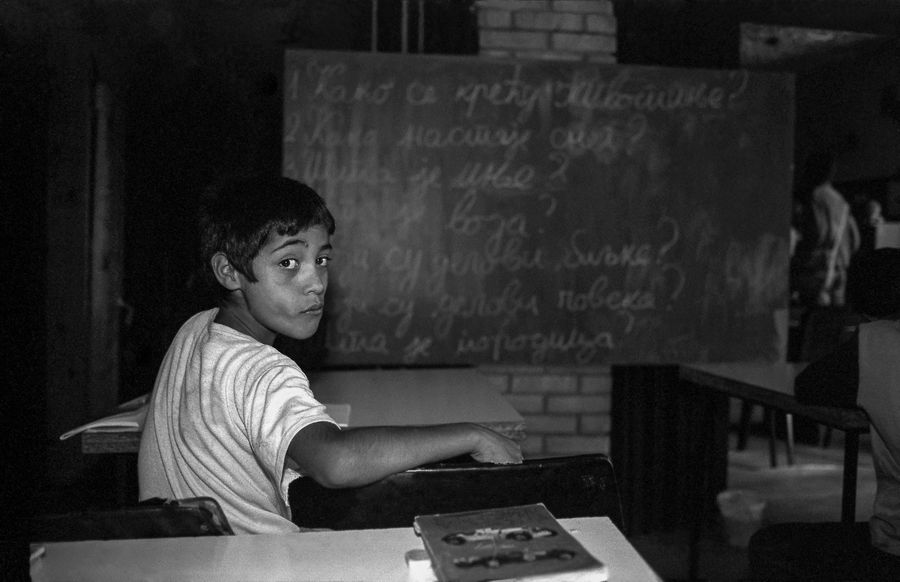 1 Како се крећу животиње?
2. Како настају
Шта је
је вода?
су делови биљке?
су делови човека?
је породица?